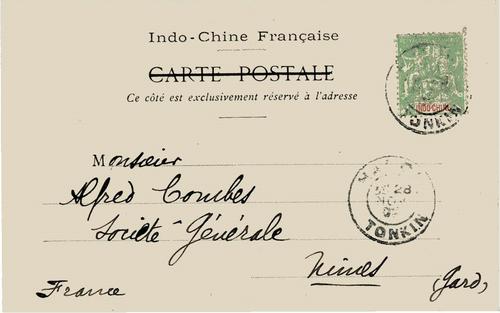 Indo-Chine Française
CARTE POSTALE
Ce côté est exclusivement réservé à l'adresse
INDO-CHINE
TONKIN
Monsieur
Alfred Combes
Société Générale
Nimes (Gard)
France
28
TONKIN